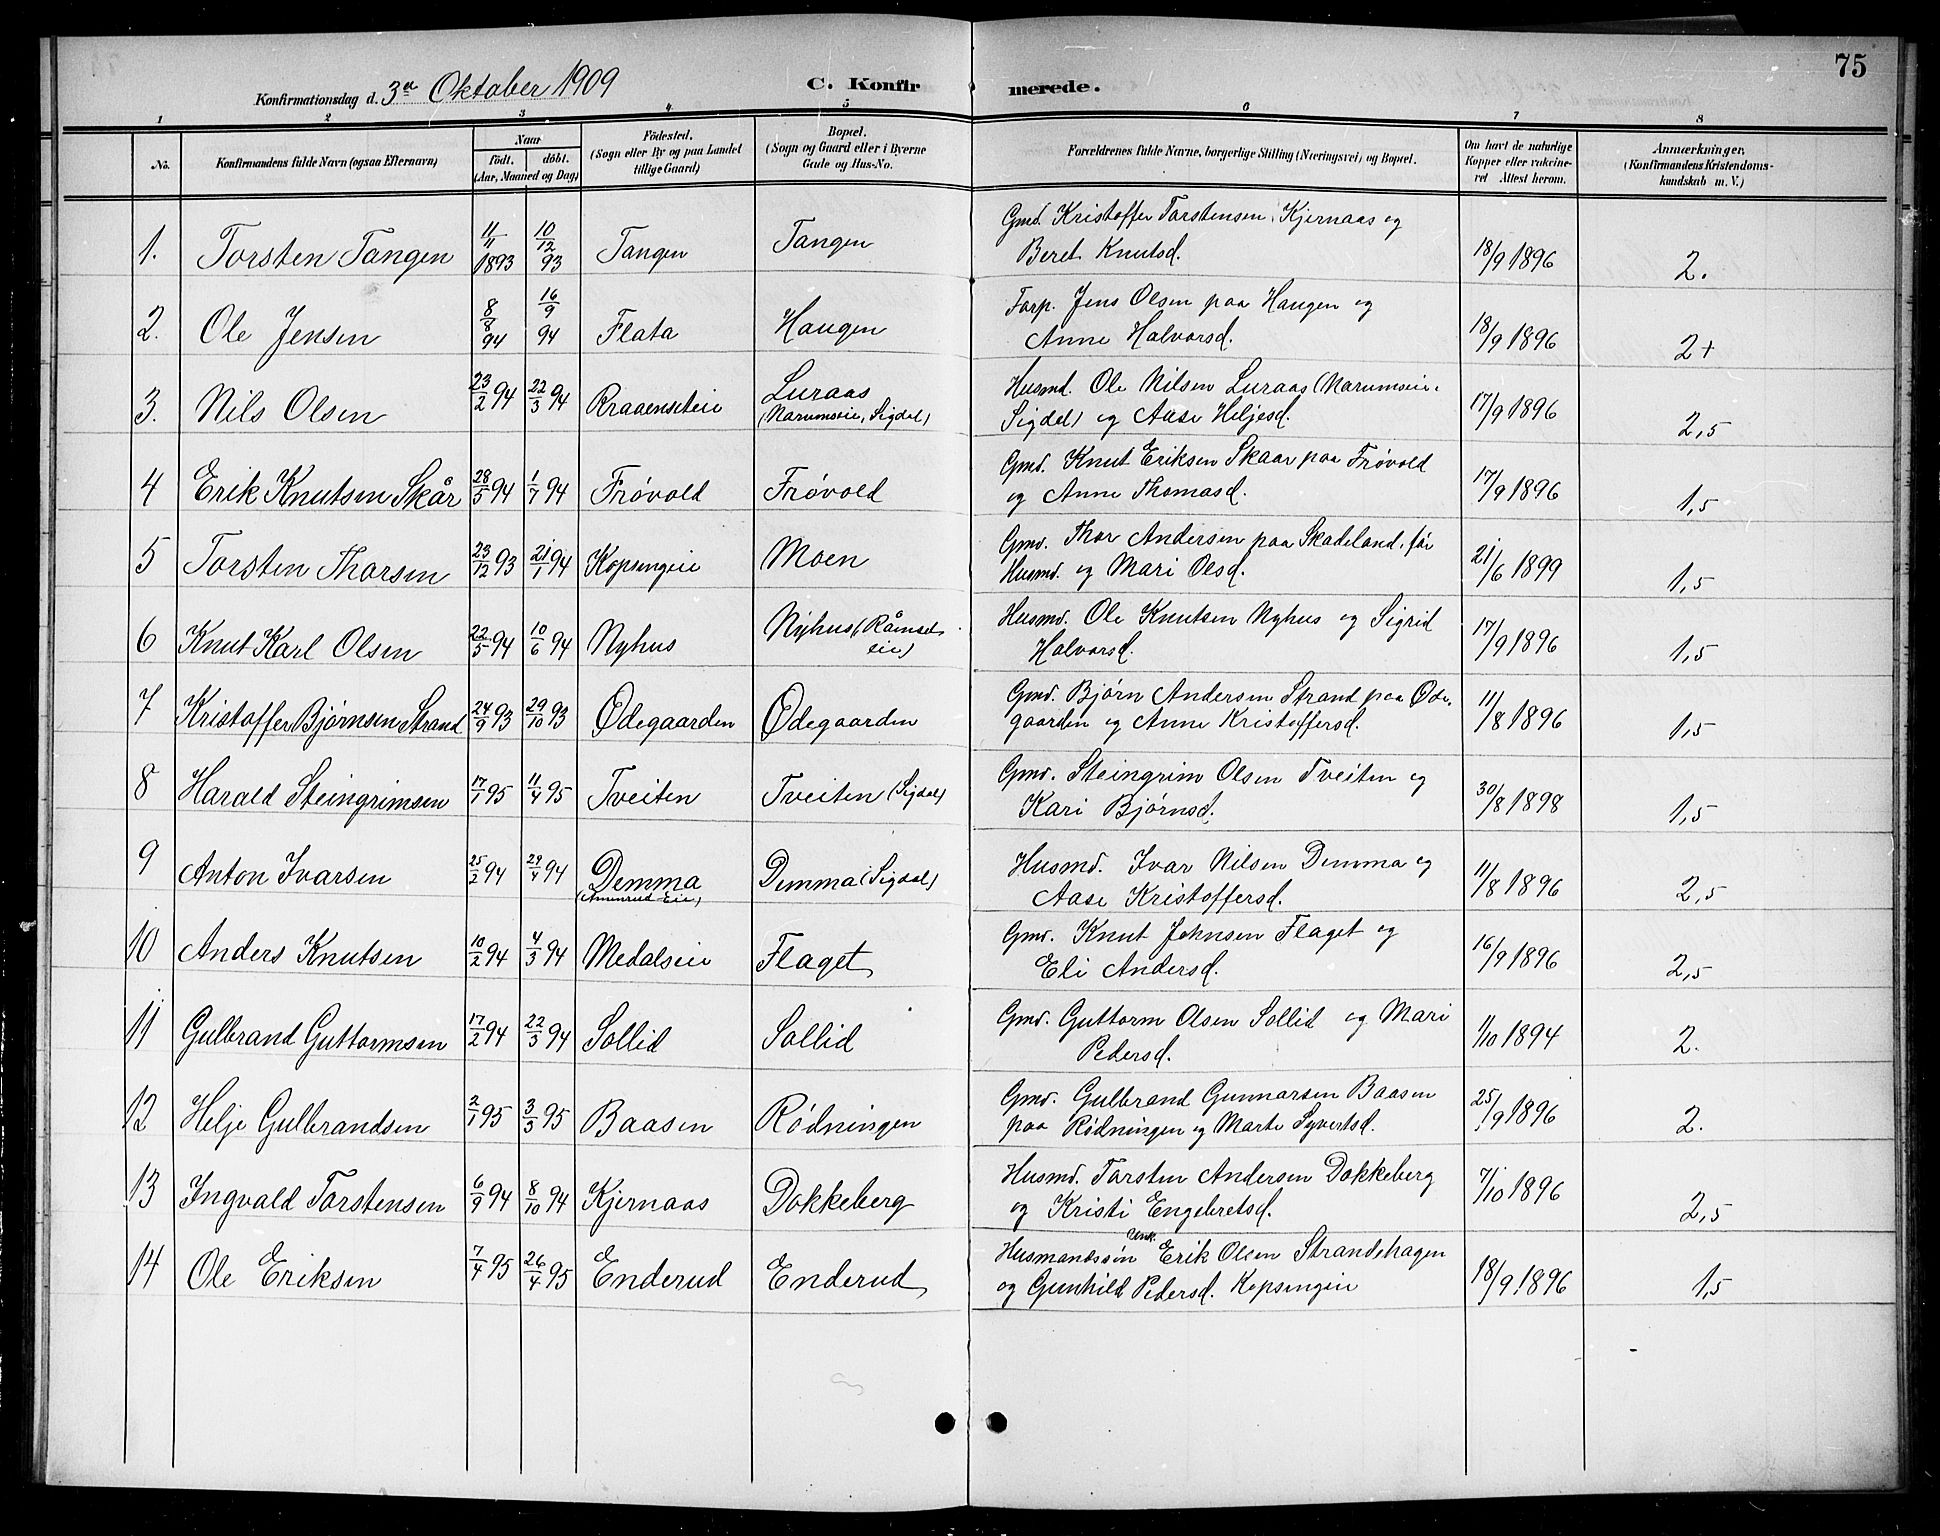 75
Konfirmationsdag d. 3die Oktober 1909 C. Konfirmerede.
1 2 3 4 5 6 7 8
No. Konfirmandens fulde Navn (ogsaa Efternavn) Naar født. døbt. (Aar, Maaned og Dag) Fødested. (Sogn eller By og paa Landet tillige Gaard) Bopæl. (Sogn og Gaard eller i Byerne Gade og Hus-No. Forældrenes fulde Navne, borgerlige Stilling (Næringsvei) og Bopæl. Om havt de naturlige Kopper eller vakcineret Attest herom. Anmærkninger, (Konfirmandens Kristendomskundskab m. V.)
1. Torsten Tangen 11/11 1893 10/12 93 Tangen Tangen Gmd. Kristoffer Torstensen Kjernaas og
Beret Knutsd. 18/9 1896 2.
2. Ole Jensen 8/8 94 16/9 94 Flata Haugen Forp. Jens Olsen paa Haugen og
Anne Halvorsd. 18/9 1896 2+
3. Nils Olsen 23/2 94 22/3 94 Braaenseteie Luraas (Narumseie, Sigdal) Husmd. Ole Nilsen Luraas (Narumseie,
Sigdal) og Aase Heljesd. 17/9 1896 2,5
4 Erik Knutsen Skår 28/5 94 1/7 94 Frøvold Frøvold Gmd. Knut Eriksen Skaar paa Frøvold
og Anne Thomasd. 17/9 1896 1,5
5 Torsten Thorsen 23/12 93 21/1 94 Kopsengeie Moen Gmd. Thor Andersen paa Skadeland, før
Husmd. og Mari Olsd. 21/6 1899 1,5
6 Knut Karl Olsen 22/5 94 10/6 94 Nyhus Nyhus (Råmsets eie) Husmd. Ole Knutsen Nyhus og Sigrid
Halvorsd. 17/9 1896 1,5
7 Kristoffer Bjørnsen Strand 24/9 93 29/10 93 Ødegaarden Ødegaarden Gmd. Bjørn Andersen Strand paa Øde-
gaarden og Anne Kristoffersd. 11/8 1896 1,5
8 Harald Steingrimsen 17/1 95 11/4 95 Tveiten Tveiten (Sigdal) Gmd. Steingrim Olsen Tveiten og
Kari Bjørnsd. 30/8 1898 1,5
9 Anton Ivarsen 25/2 94 29/4 94 Demma (Amunrud Eie) Demma (Sigdal) Husmd. Ivar Nilsen Demma og
Aase Kristoffersd. 11/8 1896 2,5
10 Anders Knutsen 10/2 94 4/3 94 Medalseie Flaget Gmd. Knut Johnsen Flaget og
Eli Andersd. 16/9 1896 2,5
11 Gulbrand Guttormsen 17/2 94 22/3 94 Sollid Sollid Gmd. Guttorm Olsen Sollid og Mari
Pedersd. 1/10 1894 2.
12 Helje Gulbrandsen 2/1 95 3/3 95 Baasen Rødningen Gmd. Gulbrand Gunnarsen Baasen
paa Rødningen og Marte Syvertsd. 25/9 1896 2.
13 Ingvald Torstensen 6/9 94 8/10 94 Kjernaas Dokkeberg Husmd. Torsten Andersen Dokkeberg
og Kristi Engebretsd. 7/10 1896 2,5
14 Ole Eriksen 7/4 95 26/4 95 Enderud Enderud Husmandssøn Unk. Erik Olsen Strandehagen
og Gunhild Pedersd. Kopsengeie 18/9 1896 1,5